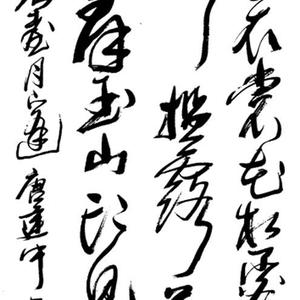 衣裳花想容
槛露
群玉山头见
台月下逢 唐建中